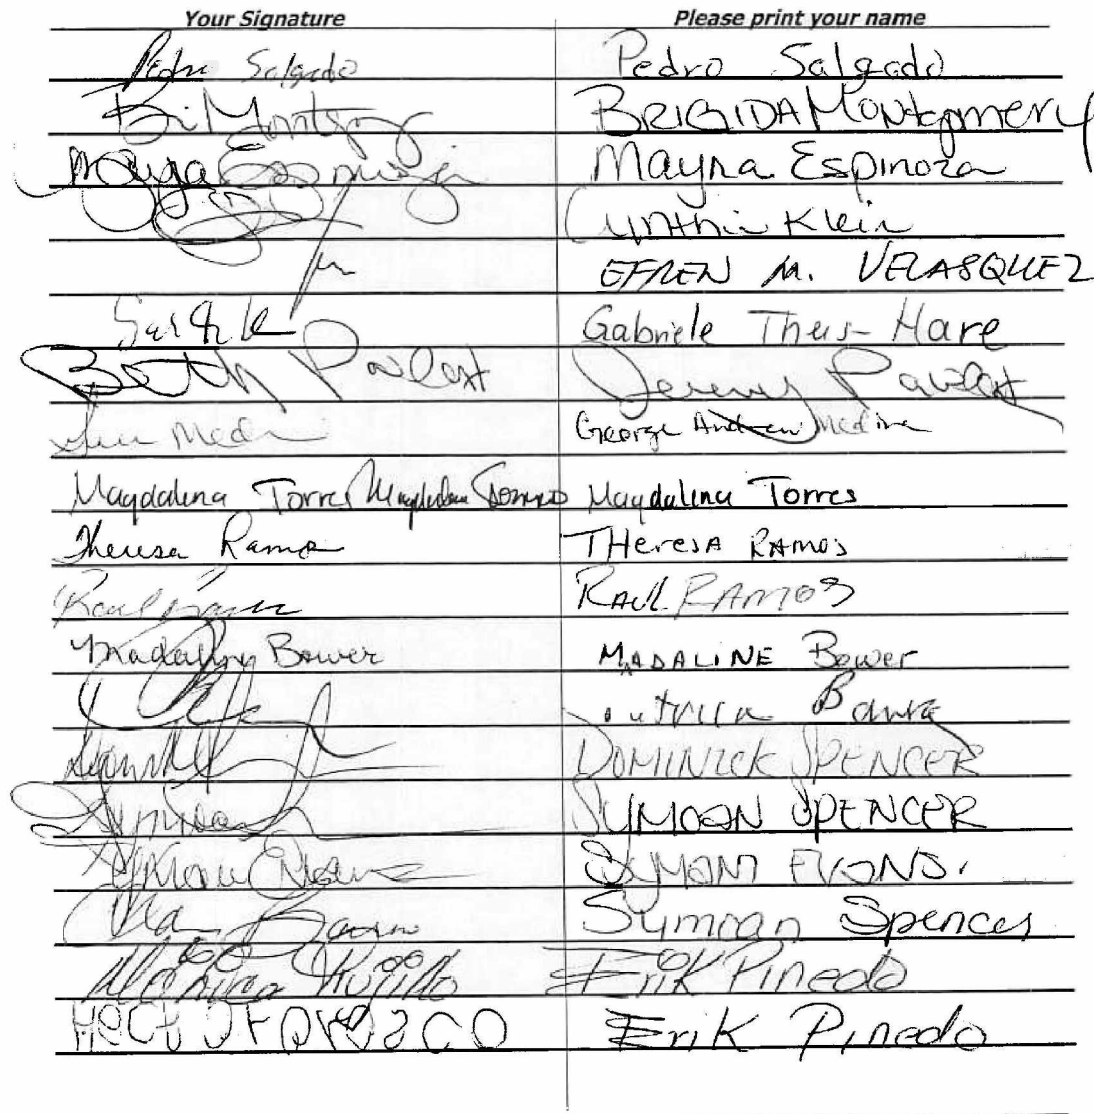 Your Signature Please print your name
Pedro Salgado Pedro Salgado
Bri Montgmry BRIGIDA Montgomery
Mayra Espinoza Mayra Espinoza
Cynthia Klein
EFREN M. VELASQUEZ
Gabriele Theis-Hare
Pavlat Jeremy Pavlat
Medi George Andrew Medina
Magdalena Torres Magdalena Torres Magdalena Torres
Theresa Ramos THeresA RAMOS
Raul Ramos RAUL RAMOS
Madaline Bower MADALINE Bower
DOMINICK SPENCER
SYMOAN SPENCER
SYMONI EVONS.
Symoan Spencer
Monica Trujillo Erik Pinedo
Erik Pinedo